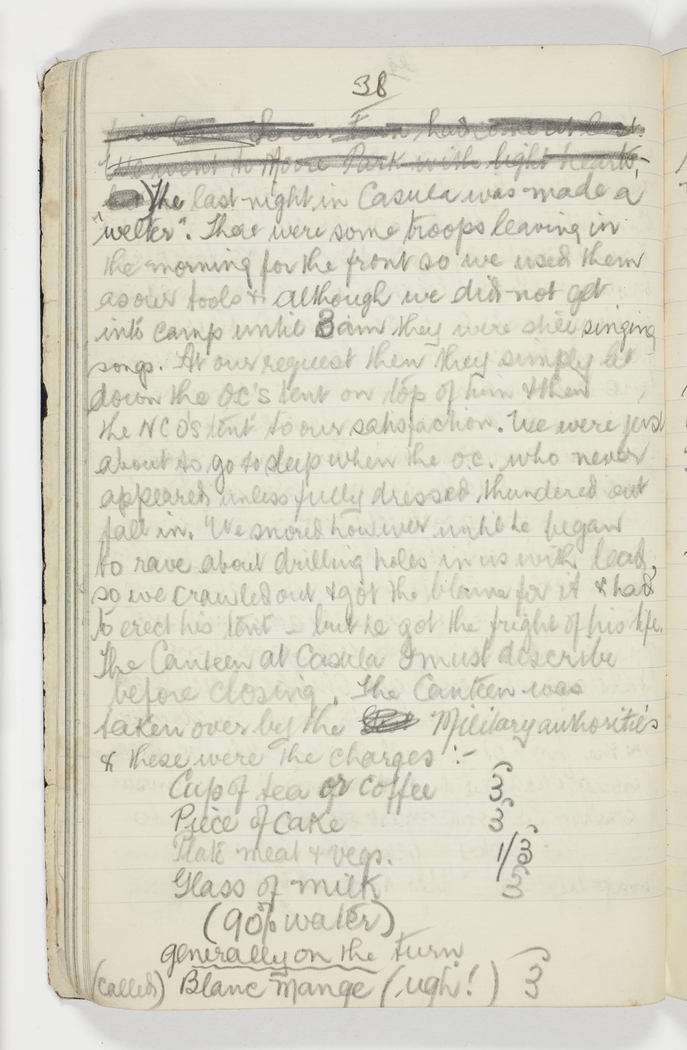 38
So our turn had come at last.
We went to Moore Park with light hearts,
The last night in Casula was made a
"welter". There were some troops leaving in
the morning for the front so we used them
as our tools & although we did not get
into camp until 3 am they were still singing
songs. At our request then they simply let
down the OC's tent on top of him & then
the NCO's tent to our satisfaction. We were just
about to go to sleep when the o.c. who never
appeared unless fully dressed, thundered out
fall in. We snored however until he began
to rave about drilling holes in us with lead,
so we crawled out & got the blame for it & had
to erect his tent – but he got the fright of his life.
The Canteen at Casula I must describe
before closing. The Canteen was
taken over by the Military authorities
& these were the charges :-
Cup of tea or coffee 3
Piece of Cake 3
Plate meat & vegs. 1/3
Glass of milk 3
(90% water)
generally on the turn
(called) Blanc Mange (ugh!) 3